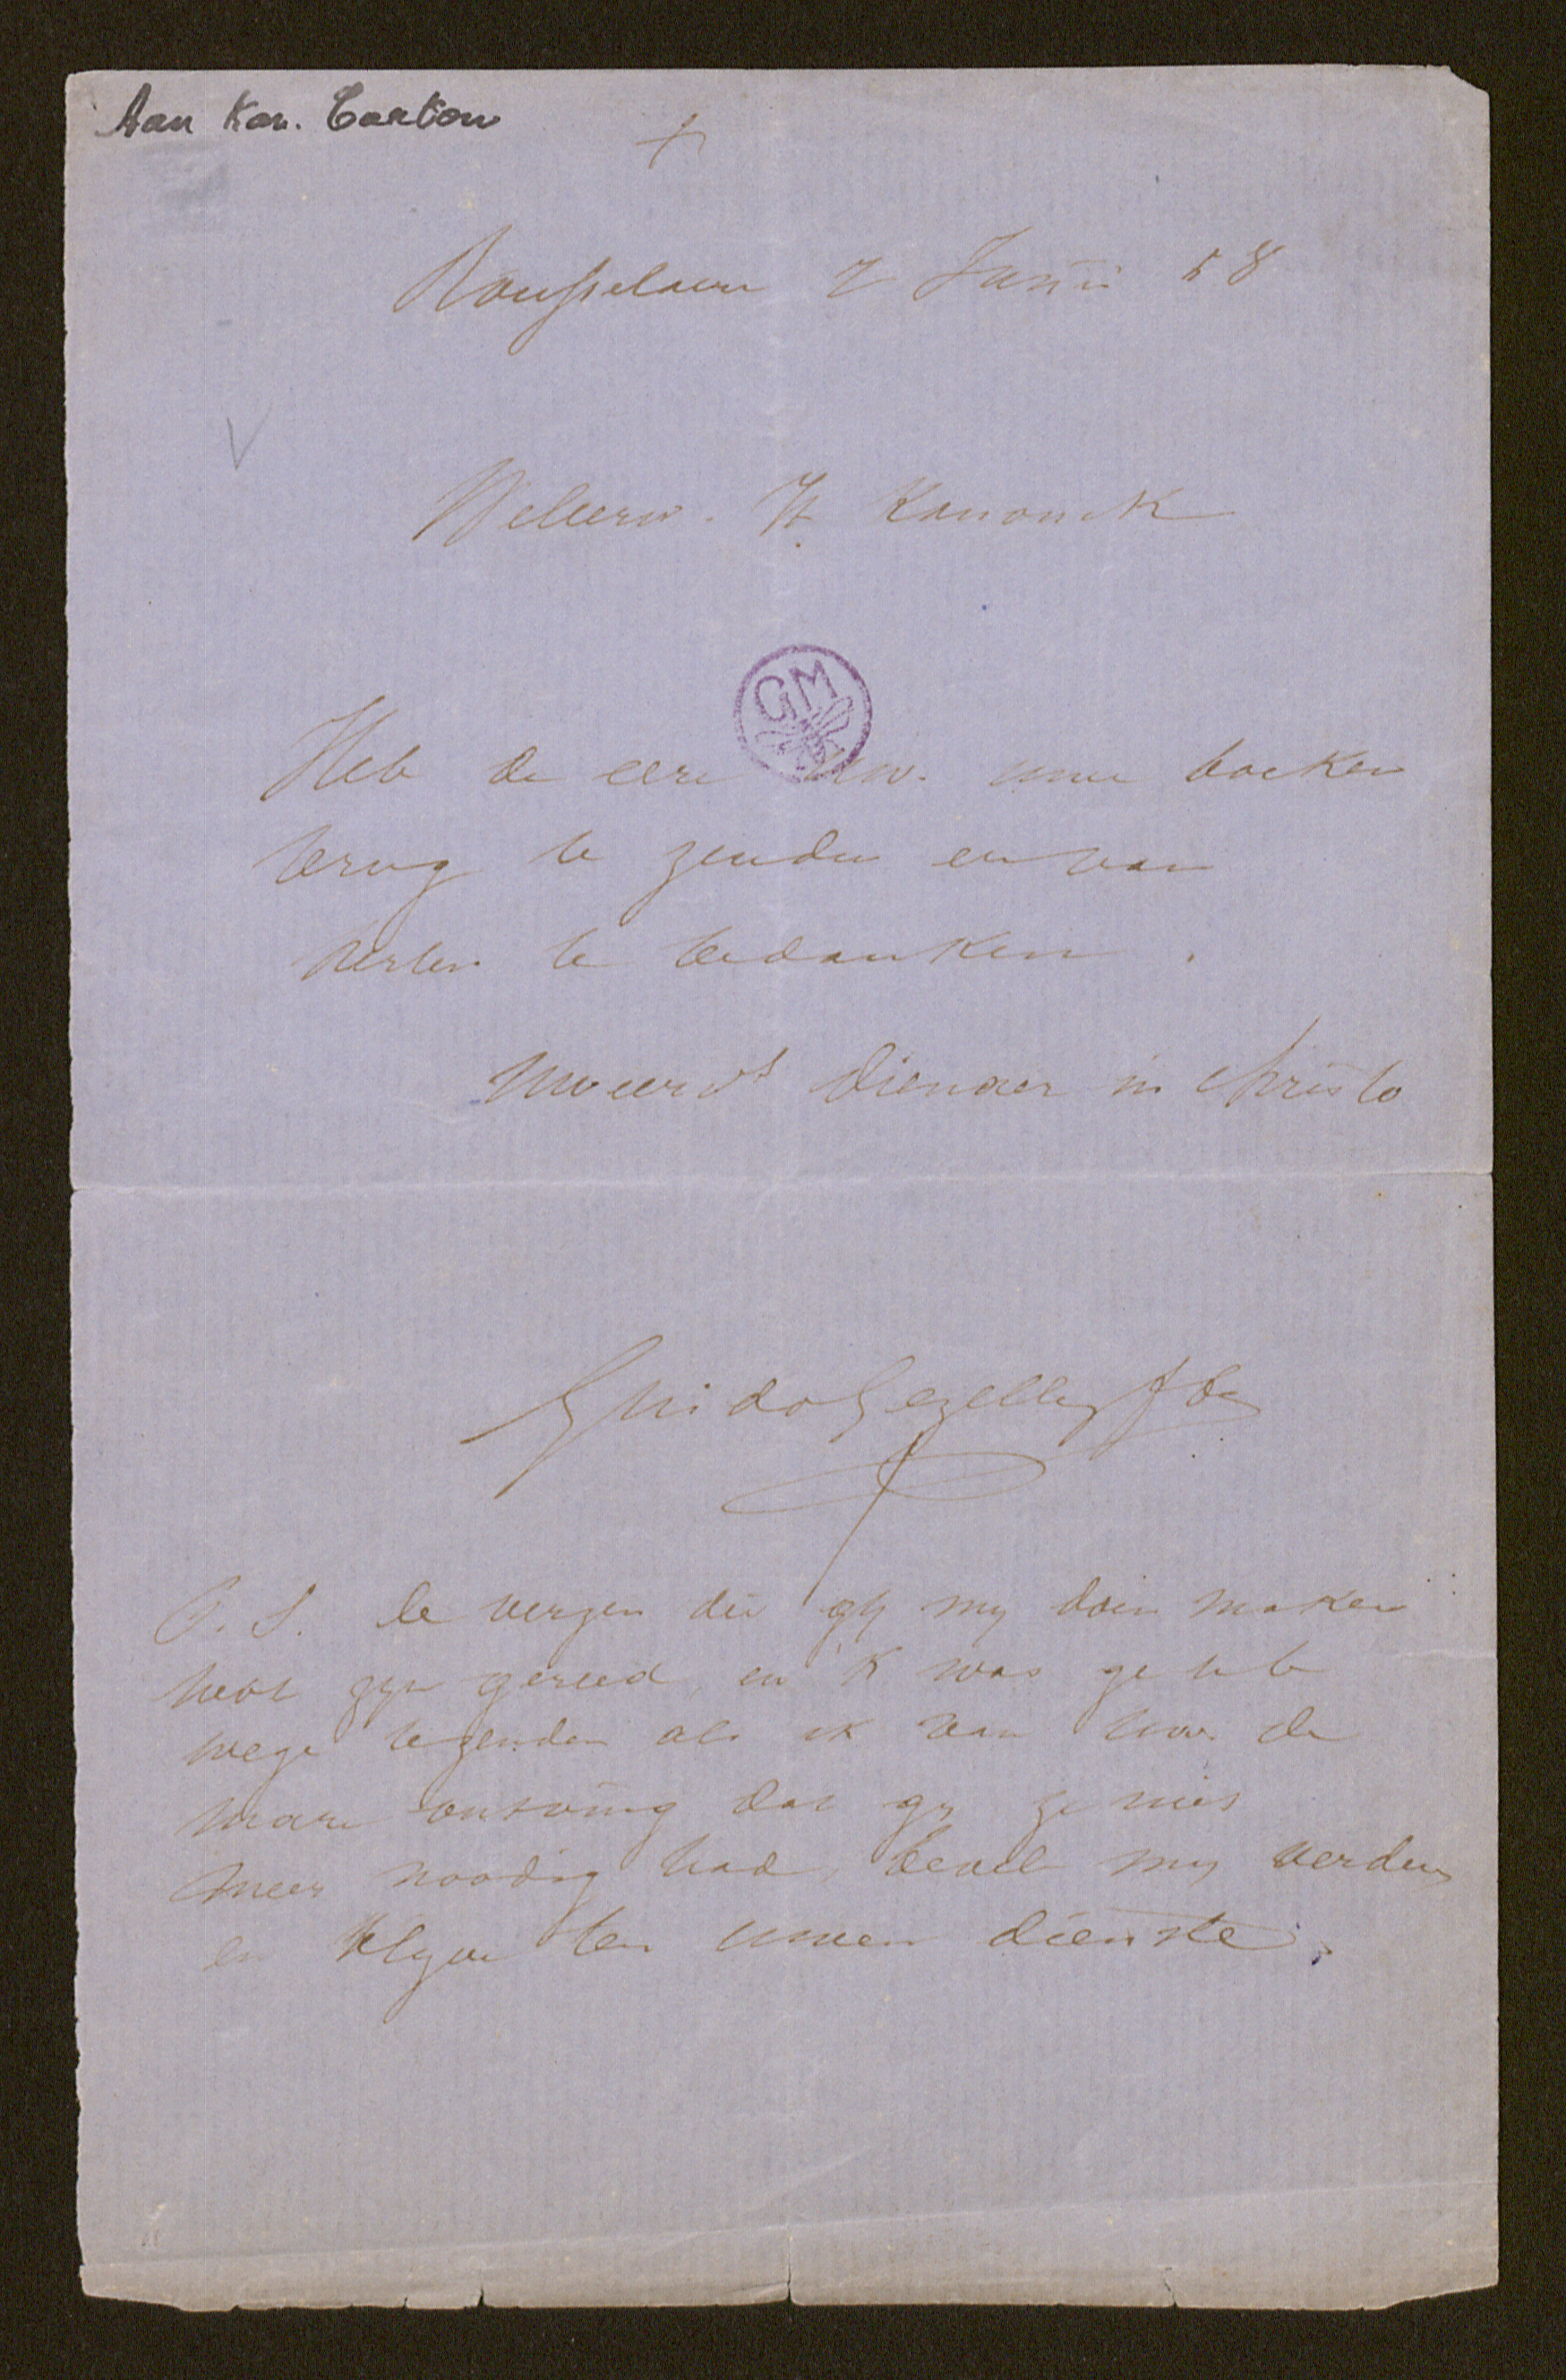 Aan Kan. Carton
+
Rousselaere 7 Junii 58
Weleerw. H. Kanonck
GM
Heb de eere Uw. uwe boeken
terug te zenden en van
herten te bedanken.
Uweerds dienaer in Christo
Guido Gezelle
P.S. de verzen die gy my doen maken
hebt zyn gereed, en 'k was ge te
wege te zenden als ik van Uw. de
mare ontving dat gy ze niet
meer noodig had, beveel my verders
en blyve ten uwen dienste.